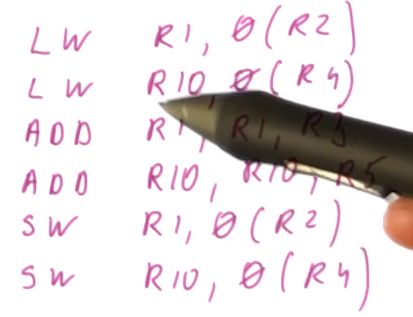 LW R1, 0(R2)
LW R10, 0(R4)
ADD R1, R1, R3
ADD R10, R10, R5
SW R1, 0(R2)
SW R10, 0(R4)